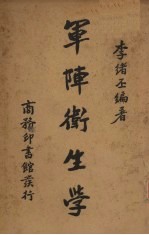 李緒丕編著
軍陣衛生学
商務印書館發行